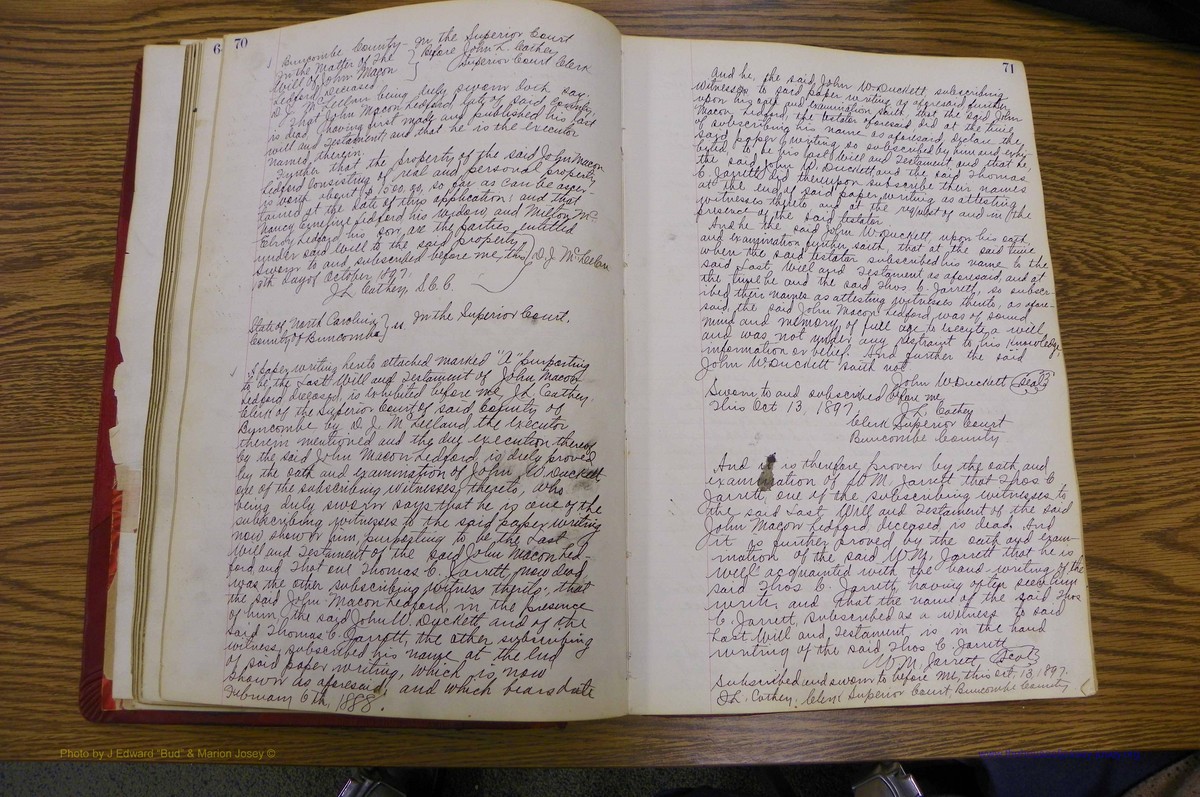 6
70
Buncombe County - In the Superior Court
In the Matter of The } Before John L. Cathey
Will of John Macon } Superior Court Clerk
Ledford Deceased
D. J. McClellan being duly sworn doth say:
That John Macon Ledford, late of said County,
is dead, having first made and published his last
will and testament, and that he is the executor
named therein.
Further that the property of the said John Macon
Ledford consisting of real and personal property
is worth about $1500.00, so far as can be ascer-
tained at the date of this application; and that
Nancy Ledford his widow, and Milton Mc
Elroy Ledford his son, are the parties entitled
under said will to the said property
Sworn to and subscribed before me, this } D. J. McClellan
day of October 1897.
J L Cathey, S.C.C.
State of North Carolina } ss. In the Superior Court.
County of Buncombe
A paper writing hereto attached marked "A" purporting
to be the Last Will and Testament of John Macon
Ledford deceased, is exhibited before me, J L Cathey,
Clerk of the Superior Court of said County of
Buncombe by D. J. McClelland the executor
therein mentioned and the due execution thereof
by the said John Macon Ledford is duly proved
by the oath and examination of John W. Duckett
one of the subscribing witnesses thereto, who
being duly sworn says that he is one of the
subscribing witnesses to the said paper writing
now shown him, purporting to be the Last
Will and Testament of the said John Macon Led-
ford and that one Thomas C. Jarrett, now dead,
was the other subscribing witness thereto, that
the said John Macon Ledford, in the presence
of him, the said John W. Duckett and of the
said Thomas C. Jarrett, the other subscribing
witness, subscribed his name at the end
of said paper writing, which is now
shown as aforesaid, and which bears date
February 6th, 1888.
71
And he, the said John W Duckett subscribing
witness to said paper writing as aforesaid, further
upon his oath and examination saith, that the said John
Macon Ledford, the testator aforesaid did at the time
of subscribing his name as aforesaid, declare the
said paper writing so subscribed by him and exhi-
bited, to be his last Will and Testament and that he,
the said John W. Duckett and the said Thomas
C. Jarrett did thereupon subscribe their names
at the end of said paper writing as attesting
witnesses thereto and at the request of and in the
presence of the said testator.
And he the said John W Duckett, upon his oath
and examination further saith, that at the said time
when the said testator subscribed his name to the
said Last Will and Testament as aforesaid, and at
the time he and the said Thos C. Jarrett, so subscri-
bed their names as attesting witnesses thereto, as afore-
said, the said John Macon Ledford, was of sound
mind and memory, of full age to execute a will
and was not under any restraint to his knowledge,
information or belief. And further the said
John W Duckett saith not
John W Duckett (Seal)
Sworn to and subscribed before me
This Oct 13, 1897
J L Cathey
Clerk Superior Court
Buncombe County
And it is therefore proven by the oath and
examination of W M. Jarrett that Thos C
Jarrett, one of the subscribing witnesses to
the said Last Will and Testament of the said
John Macon Ledford deceased is dead. And
it is further proved by the oath and exam-
ination of the said W M. Jarrett that he is
well acquainted with the hand-writing of the
said Thos C. Jarrett, having often seen him
write, and that the name of the said Thos
C. Jarrett, subscribed as a witness to said
Last Will and Testament, is in the hand
writing of the said Thos C. Jarrett
W M. Jarrett (Seal)
Subscribed and sworn to before me, this Oct. 13, 1897.
J L. Cathey. Clerk Superior Court Buncombe County
Photo by J Edward "Bud" & Marion Josey ©